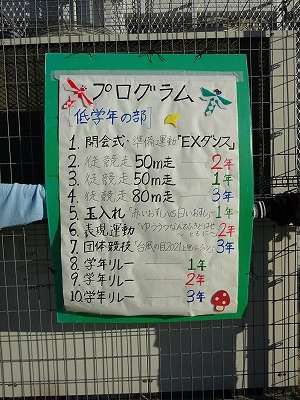 プログラム
[低学年の部]
1. 開会式・準備運動「EXダンス」
2. 徒競走 50m走 2年
3. 徒競走 50m走 1年
4. 徒競走 80m走 3年
5. 玉入れ 1年
6. 表現運動 2年
7. 団体競技 3年
8. 学年リレー 1年
9. 学年リレー 2年
10. 学年リレー 3年